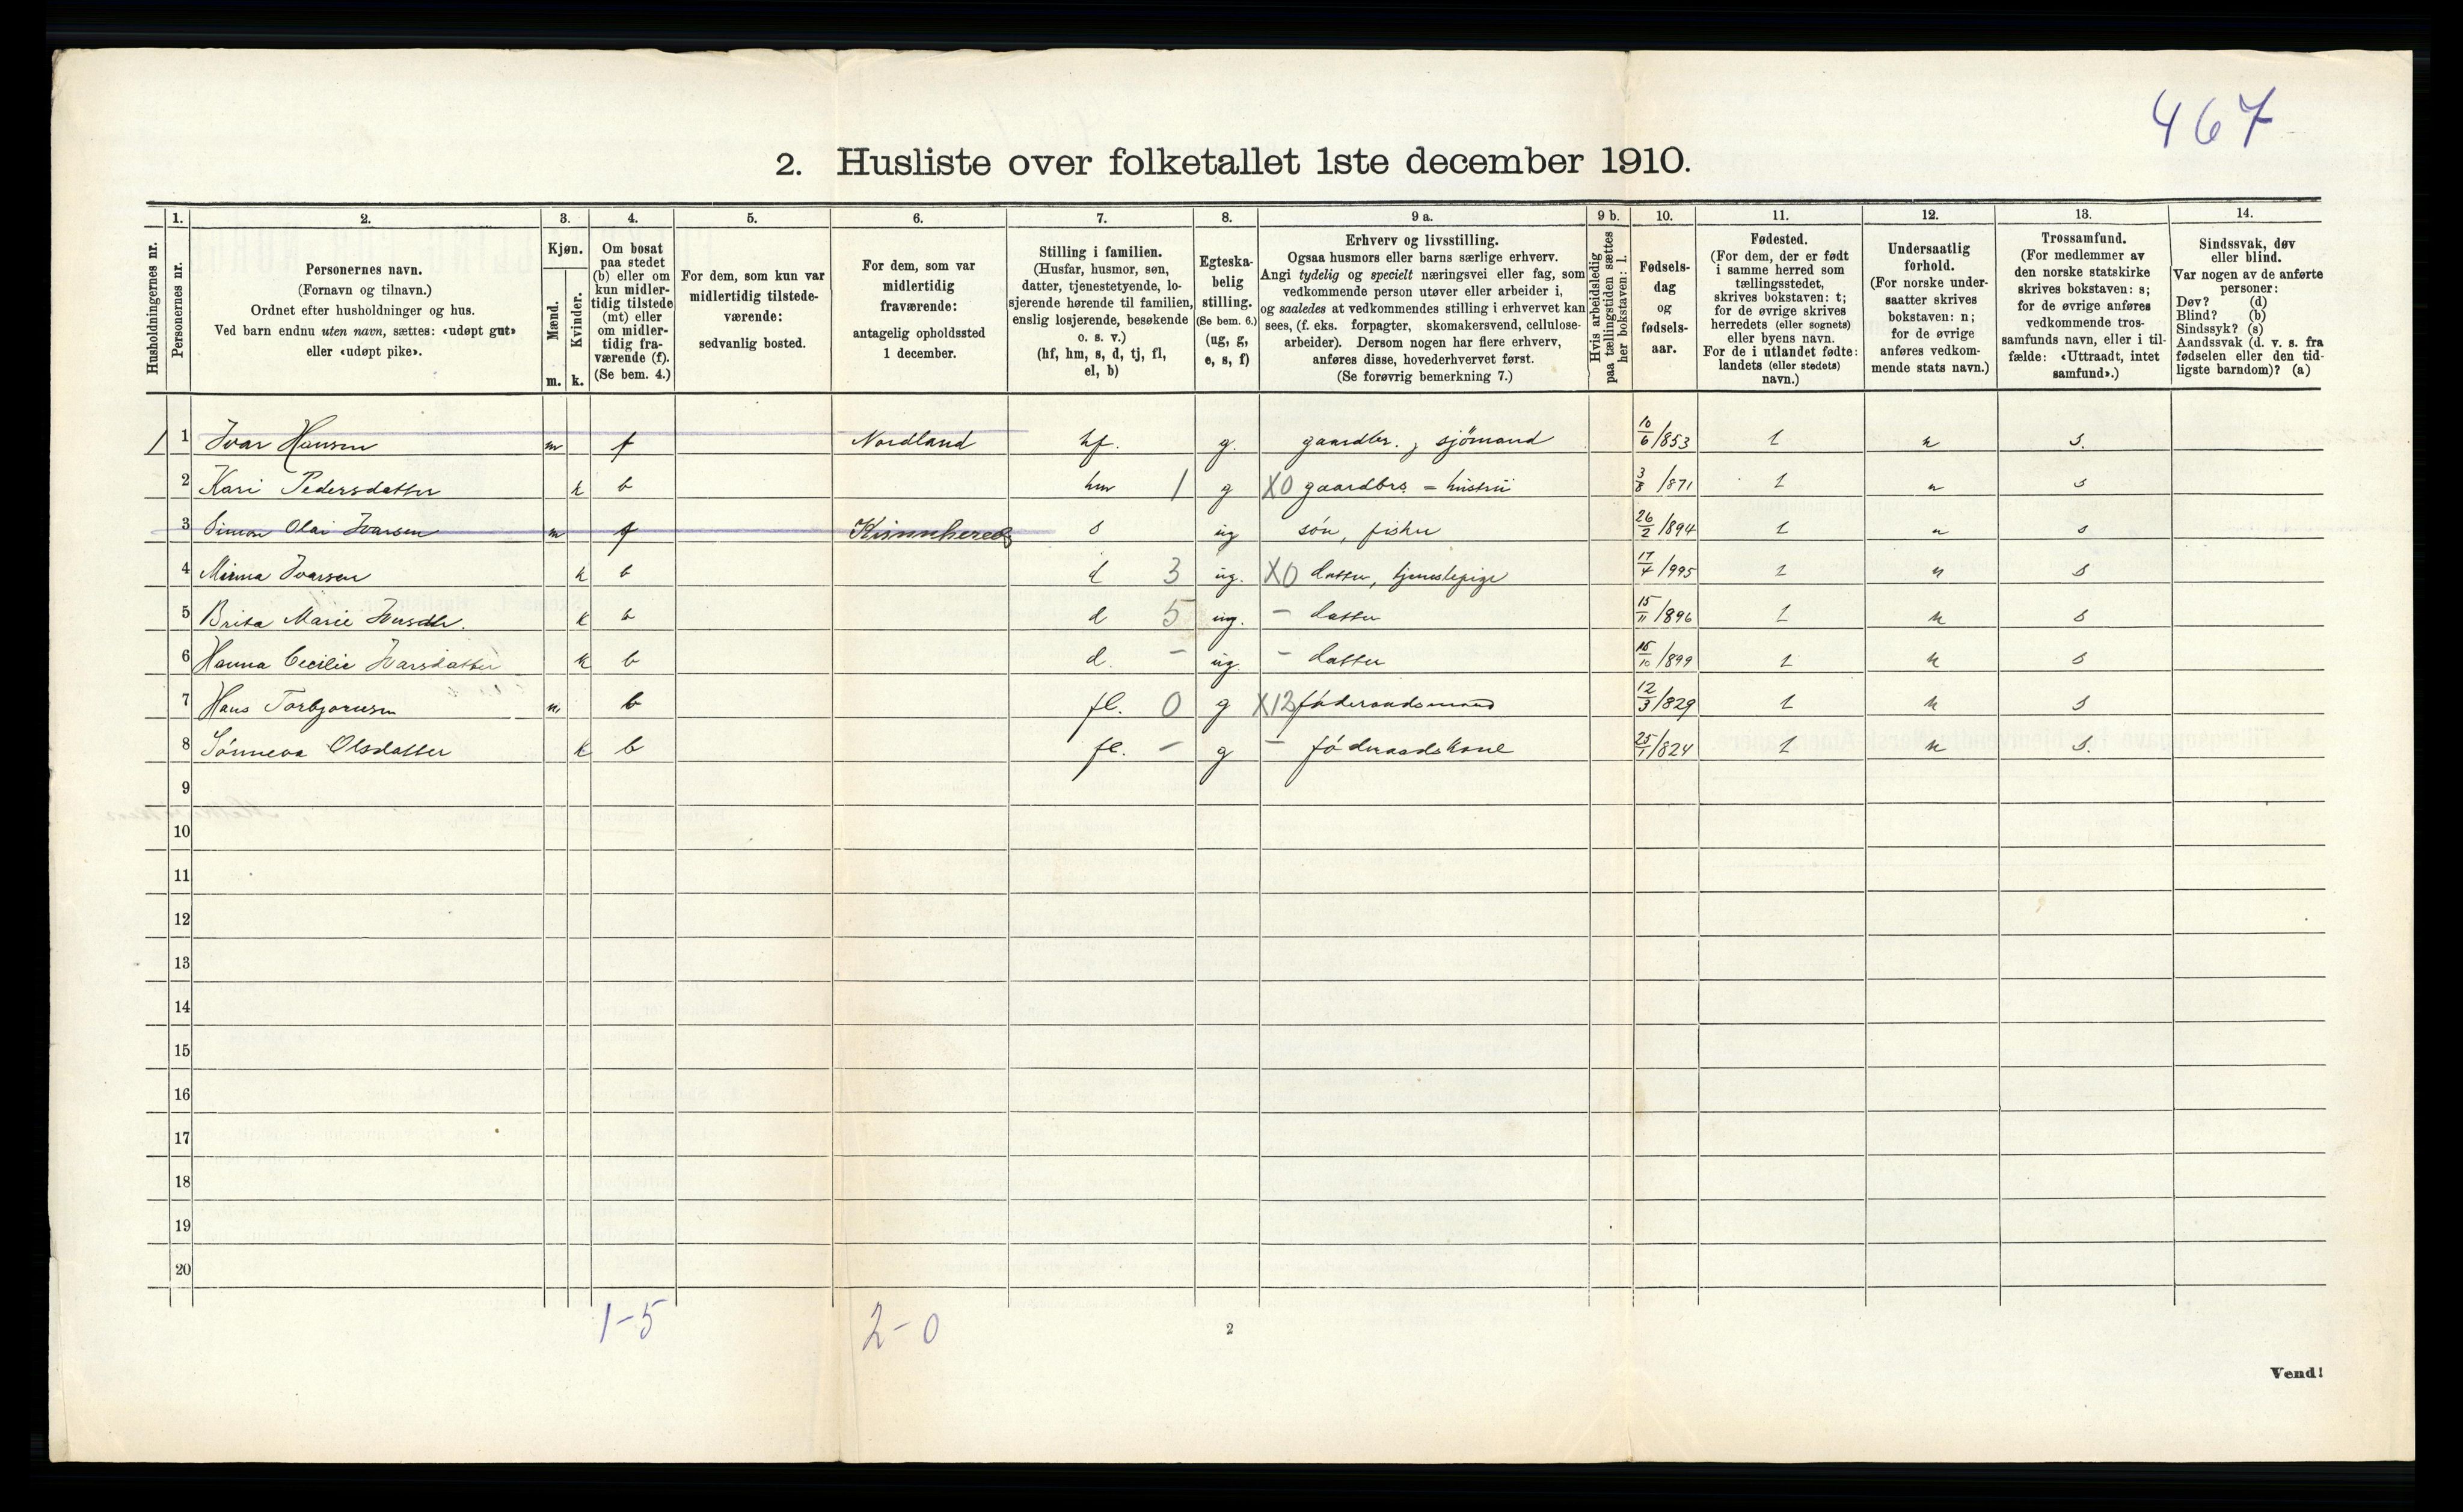 467
2. Husliste over folketallet 1ste december 1910.
Husholdningernes nr.
1. Personernes nr.
2. Personernes navn.
(Fornavn og tilnavn.)
Ordnet efter husholdninger og hus.
Ved barn endnu uten navn, sættes: «udøpt gut»
eller «udøpt pike».
3. Kjøn.
Mænd. m.
Kvinder. k.
4. Om bosat
paa stedet
(b) eller om
kun midler-
tidig tilstede
(mt) eller
om midler-
tidig fra-
værende (f).
(Se bem. 4.)
5. For dem, som kun var
midlertidig tilstede-
værende:
sedvanlig bosted.
6. For dem, som var
midlertidig
fraværende:
antagelig opholdssted
1 december.
7. Stilling i familien.
(Husfar, husmor, søn,
datter, tjenestetyende, lo-
sjerende hørende til familien,
enslig losjerende, besøkende
o. s. v.)
(hf, hm, s, d, tj, fl,
el, b)
8. Egteska-
belig
stilling.
(Se bem. 6.)
(ug, g,
e, s, f)
9 a. Erhverv og livsstilling.
Ogsaa husmors eller barns særlige erhverv.
Angi tydelig og specielt næringsvei eller fag, som
vedkommende person utøver eller arbeider i,
og saaledes at vedkommendes stilling i erhvervet kan
sees, (f. eks. forpagter, skomakersvend, cellulose-
arbeider). Dersom nogen har flere erhverv,
anføres disse, hovederhvervet først.
(Se forøvrig bemerkning 7.)
9 b. Hvis arbeidsledig
paa tællingstiden sættes
her bokstaven: l.
10. Fødsels-
dag
og
fødsels-
aar.
11. Fødested.
(For dem, der er født
i samme herred som
tællingsstedet,
skrives bokstaven: t;
for de øvrige skrives
herredets (eller sognets)
eller byens navn.
For de i utlandet fødte:
landets (eller stedets)
navn.)
12. Undersaatlig
forhold.
(For norske under-
saatter skrives
bokstaven: n;
for de øvrige
anføres vedkom-
mende stats navn.)
13. Trossamfund.
(For medlemmer av
den norske statskirke
skrives bokstaven: s;
for de øvrige anføres
vedkommende tros-
samfunds navn, eller i til-
fælde: «Uttraadt, intet
samfund».)
14. Sindssvak, døv
eller blind.
Var nogen av de anførte
personer:
Døv? (d)
Blind? (b)
Sindssyk? (s)
Aandssvak (d. v. s. fra
fødselen eller den tid-
ligste barndom)? (a)
1 1 Ivar Hansen m f Nordland hf. g. gaardbr. , sjömand 10/6/853 t n s.
2 Kari Pedersdatter k b hm 1 g X0 gaardbrs = hustru 3/8/871 t n s
3 Simon Olai Ivarsen m f Kinnherred s ug søn, fisker 26/2/894 t n s
4 Minna Ivarsen k b d 3 ug. X0 datter, tjenestepige 17/4/995 t n s
5 Brita Marie Ivarsdtr. k b d 5 ug. - datter 15/11/896 t n s
6 Hanna Cecilie Ivarsdatter k b d. - ug. - datter 15/10/899 t n s
7 Hans Torbjornsen m. b fl. 0 g X12 føderaadsmand 12/3/829 t n s
8 Sønneva Olsdatter k b fl. - g - føderaadskone 25/1/824 t n s.
9
10
11
12
13
14
15
16
17
18
19
20
1-5 2-0
2
Vend!